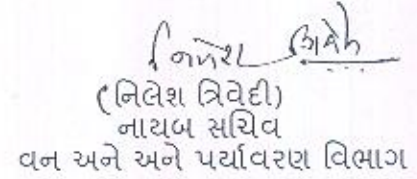 નિલેશ ત્રિવેદી
(નિલેશ ત્રિવેદી)
નાયબ સચિવ
વન અને અને પર્યાવરણ વિભાગ